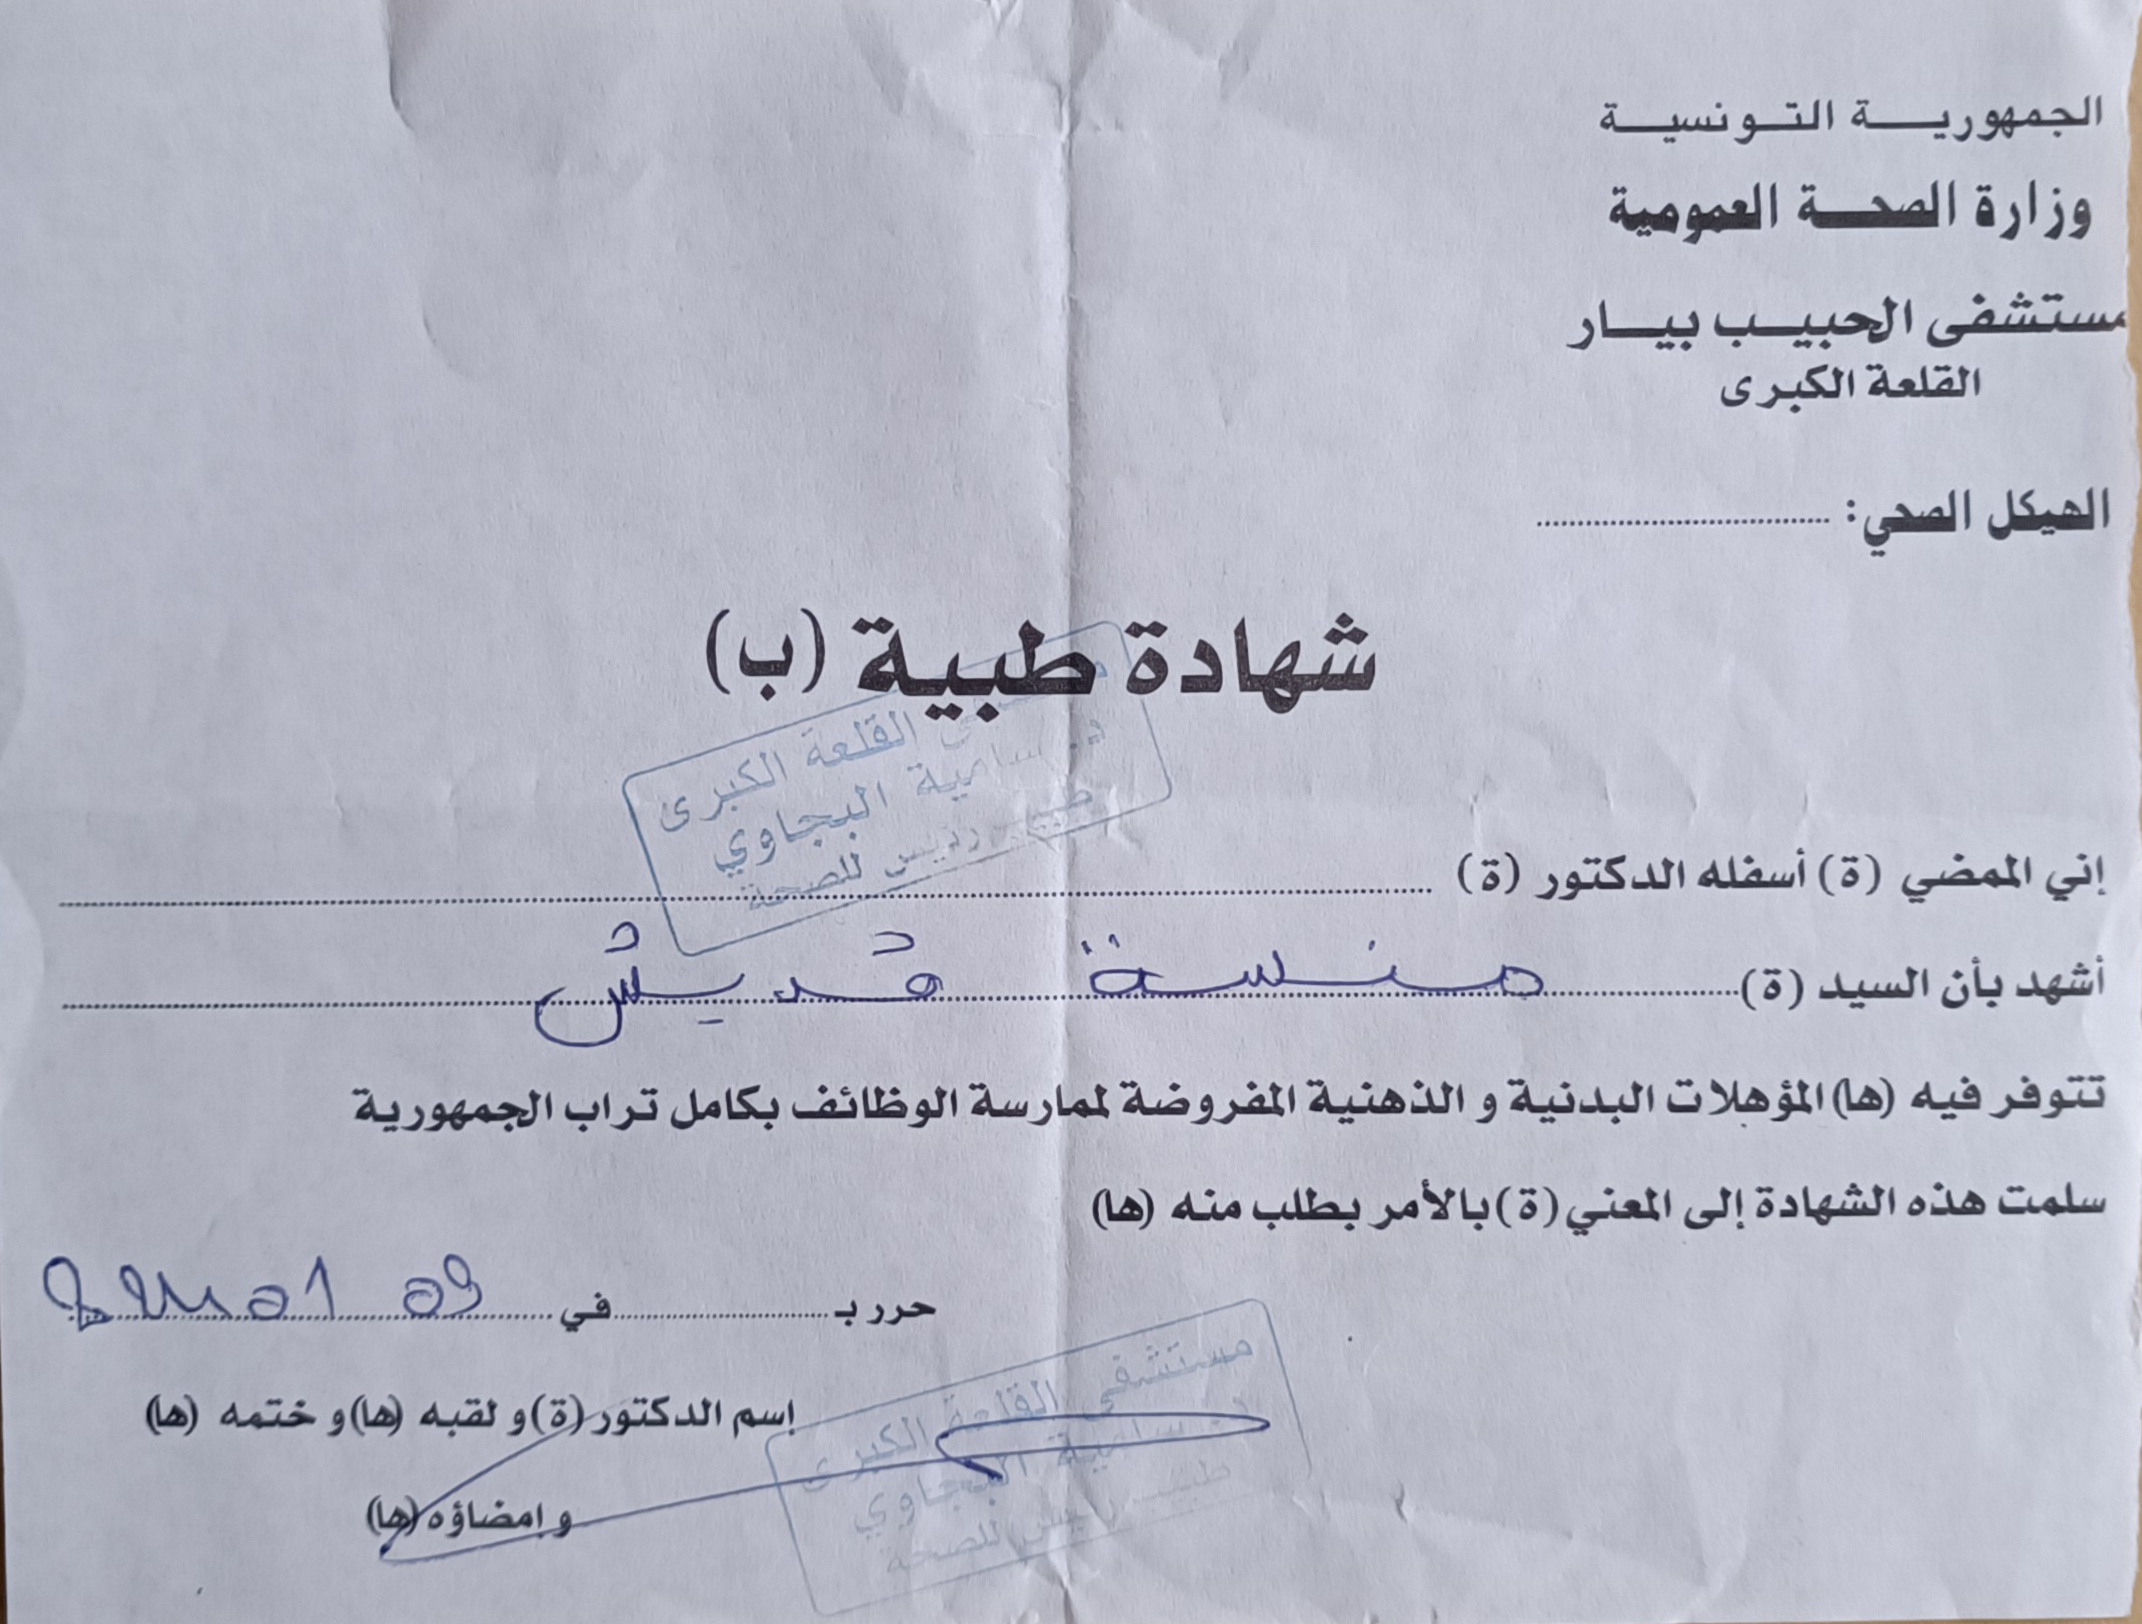 الجمهورية التونسية
وزارة الصحة العمومية
مستشفى الحبيب بيار
القلعة الكبرى
الهيكل الصحي: ........................
شهادة طبية (ب)
القلعة الكبرى
د. سامية البجاوي
طبيب رئيس للصحة
إني الممضي (ة) أسفله الدكتور (ة) ........................
أشهد بأن السيد (ة) منسة قديش
تتوفر فيه (ها) المؤهلات البدنية و الذهنية المفروضة لممارسة الوظائف بكامل تراب الجمهورية
سلمت هذه الشهادة إلى المعني (ة) بالأمر بطلب منه (ها)
حرر بـ ............ في 09 01
مستشفى القلعة الكبرى
د. سامية البجاوي
طبيب رئيس للصحة
إسم الدكتور (ة) و لقبه (ها) و ختمه (ها)
و إمضاؤه (ها)